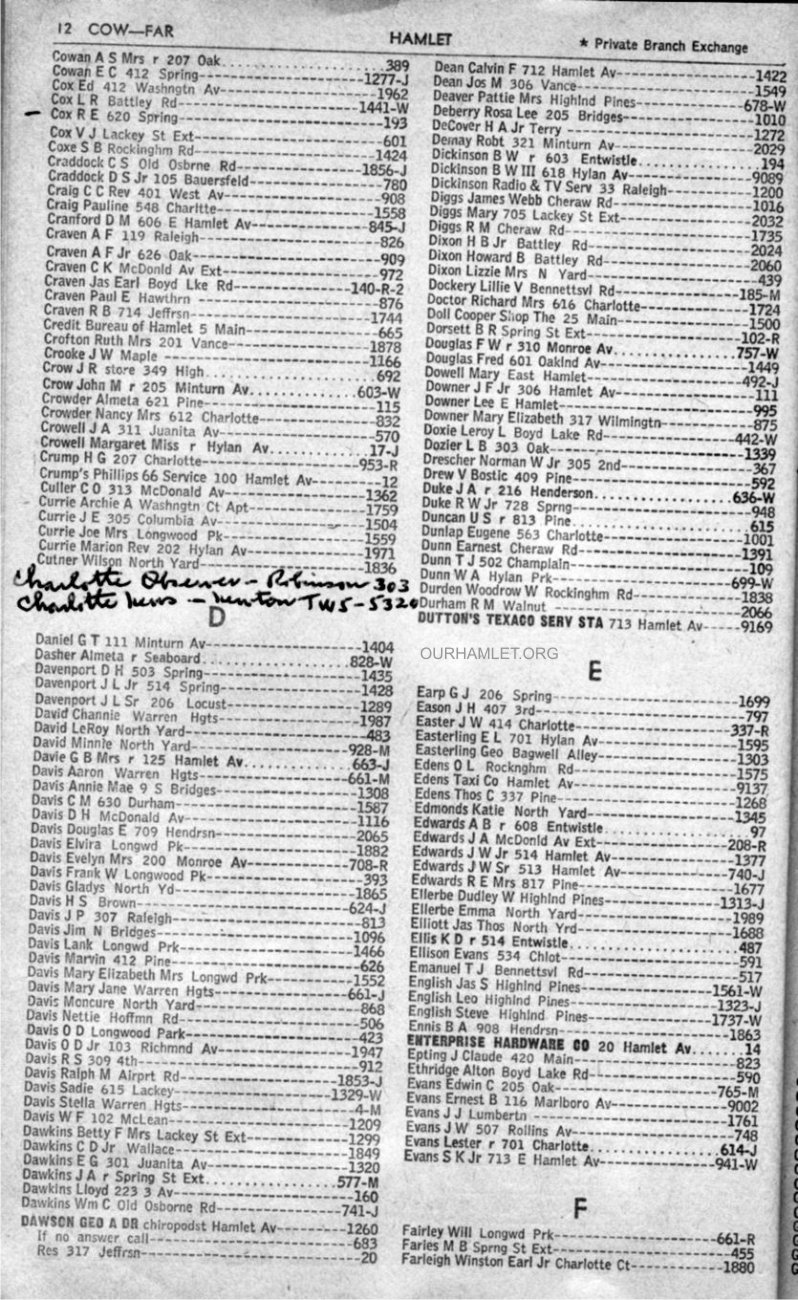 12 COW—FAR
HAMLET
★ Private Branch Exchange
Cowan A S Mrs r 207 Oak 389
Cowan E C 412 Spring 1277-J
Cox Ed 412 Washngtn Av 1962
Cox L R Battley Rd 1441-W
Cox R E 620 Spring 193
Cox V J Lackey St Ext 601
Coxe S B Rockinghm Rd 1424
Craddock C S Old Osbrne Rd 1856-J
Craddock D S Jr 105 Bauersfeld 780
Craig C C Rev 401 West Av 908
Craig Pauline 548 Charltte 1558
Cranford D M 606 E Hamlet Av 845-J
Craven A F 119 Raleigh 826
Craven A F Jr 626 Oak 909
Craven C K McDonld Av Ext 972
Craven Jas Earl Boyd Lke Rd 140-R-2
Craven Paul E Hawthrn 876
Craven R B 714 Jeffrsn 1744
Credit Bureau of Hamlet 5 Main 665
Crofton Ruth Mrs 201 Vance 1878
Crooke J W Maple 1166
Crow J R store 349 High 692
Crow John M r 205 Minturn Av 603-W
Crowder Almeta 621 Pine 115
Crowder Nancy Mrs 612 Charlotte 832
Crowell J A 311 Juanita Av 570
Crowell Margaret Miss r Hylan Av 17-J
Crump H G 207 Charlotte 953-R
Crump's Phillips 66 Service 100 Hamlet Av 12
Culler C O 313 McDonald Av 1362
Currie Archie A Washngtn Ct Apt 1759
Currie J E 305 Columbia Av 1504
Currie Joe Mrs Longwood Pk 1559
Currie Marion Rev 202 Hylan Av 1971
Cutner Wilson North Yard 1836
Charlotte Observer – Robinson 303
Charlotte News – Newton TW5-5320
D
Daniel G T 111 Minturn Av 1404
Dasher Almeta r Seaboard 828-W
Davenport D H 503 Spring 1435
Davenport J L Jr 514 Spring 1428
Davenport J L Sr 206 Locust 1289
David Channie Warren Hgts 1987
David LeRoy North Yard 483
David Minnie North Yard 928-M
Davie G B Mrs r 125 Hamlet Av 663-J
Davis Aaron Warren Hgts 661-M
Davis Annie Mae 9 S Bridges 1308
Davis C M 630 Durham 1587
Davis D H McDonald Av 1116
Davis Douglas E 709 Hendrsn 2065
Davis Elvira Longwd Pk 1882
Davis Evelyn Mrs 200 Monroe Av 708-R
Davis Frank W Longwood Pk 393
Davis Gladys North Yd 1865
Davis H S Brown 624-J
Davis J P 307 Raleigh 813
Davis Jim N Bridges 1096
Davis Lank Longwd Prk 1466
Davis Marvin 412 Pine 626
Davis Mary Elizabeth Mrs Longwd Prk 1552
Davis Mary Jane Warren Hgts 661-J
Davis Moncure North Yard 868
Davis Nettie Hoffmn Rd 506
Davis O D Longwood Park 423
Davis O D Jr 103 Richmnd Av 1947
Davis R S 309 4th 912
Davis Ralph M Airprt Rd 1853-J
Davis Sadie 615 Lackey 1329-W
Davis Stella Warren Hgts 4-M
Davis W F 102 McLean 1209
Dawkins Betty F Mrs Lackey St Ext 1299
Dawkins C D Jr Wallace 1849
Dawkins E G 301 Juanita Av 1320
Dawkins J A r Spring St Ext 577-M
Dawkins Lloyd 223 3 Av 160
Dawkins Wm C Old Osborne Rd 741-J
DAWSON GEO A DR chiropodst Hamlet Av 1260
If no answer call 683
Res 317 Jeffrsn 20
Dean Calvin F 712 Hamlet Av 1422
Dean Jos M 306 Vance 1549
Deaver Pattie Mrs Highlnd Pines 678-W
Deberry Rosa Lee 205 Bridges 1010
DeCover H A Jr Terry 1272
Demay Robt 321 Minturn Av 2029
Dickinson B W r 603 Entwistle 194
Dickinson B W III 618 Hylan Av 9089
Dickinson Radio & TV Serv 33 Raleigh 1200
Diggs James Webb Cheraw Rd 1016
Diggs Mary 705 Lackey St Ext 2032
Diggs R M Cheraw Rd 1735
Dixon H B Jr Battley Rd 2024
Dixon Howard B Battley Rd 2060
Dixon Lizzie Mrs N Yard 439
Dockery Lillie V Bennettsvl Rd 185-M
Doctor Richard Mrs 616 Charlotte 1724
Doll Cooper Shop The 25 Main 1500
Dorsett B R Spring St Ext 102-R
Douglas F W r 310 Monroe Av 757-W
Douglas Fred 601 Oaklnd Av 1449
Dowell Mary East Hamlet 492-J
Downer J F Jr 306 Hamlet Av 111
Downer Lee E Hamlet 995
Downer Mary Elizabeth 317 Wilmingtn 875
Doxie Leroy L Boyd Lake Rd 442-W
Dozier L B 303 Oak 1339
Drescher Norman W Jr 305 2nd 367
Drew V Bostic 409 Pine 592
Duke J A r 216 Henderson 636-W
Duke R W Jr 728 Sprng 948
Duncan U S r 813 Pine 615
Dunlap Eugene 563 Charlotte 1001
Dunn Earnest Cheraw Rd 1391
Dunn T J 502 Champlain 109
Dunn W A Hylan Prk 699-W
Durden Woodrow W Rockinghm Rd 1838
Durham R M Walnut 2066
DUTTON'S TEXACO SERV STA 713 Hamlet Av 9169
OURHAMLET.ORG
E
Earp G J 206 Spring 1699
Eason J H 407 3rd 797
Easter J W 414 Charlotte 337-R
Easterling E L 701 Hylan Av 1595
Easterling Geo Bagwell Alley 1303
Edens O L Rocknghm Rd 1575
Edens Taxi Co Hamlet Av 9137
Edens Thos C 337 Pine 1268
Edmonds Katie North Yard 1345
Edwards A B r 608 Entwistle 97
Edwards J A McDonld Av Ext 208-R
Edwards J W Jr 514 Hamlet Av 1377
Edwards J W Sr 513 Hamlet Av 740-J
Edwards R E Mrs 817 Pine 1677
Ellerbe Dudley W Highlnd Pines 1313-J
Ellerbe Emma North Yard 1989
Elliott Jas Thos North Yrd 1688
Ellis K D r 514 Entwistle 487
Ellison Evans 534 Chlot 591
Emanuel T J Bennettsvl Rd 517
English Jas S Highlnd Pines 1561-W
English Leo Highlnd Pines 1323-J
English Steve Highlnd Pines 1737-W
Ennis B A 908 Hendrsn 1863
ENTERPRISE HARDWARE CO 20 Hamlet Av 14
Epting J Claude 420 Main 823
Ethridge Alton Boyd Lake Rd 590
Evans Edwin C 205 Oak 765-M
Evans Ernest B 116 Marlboro Av 9002
Evans J J Lumbertn 1761
Evans J W 507 Rollins Av 748
Evans Lester r 701 Charlotte 614-J
Evans S K Jr 713 E Hamlet Av 941-W
F
Fairley Will Longwd Prk 661-R
Faries M B Sprng St Ext 455
Farleigh Winston Earl Jr Charlotte Ct 1880